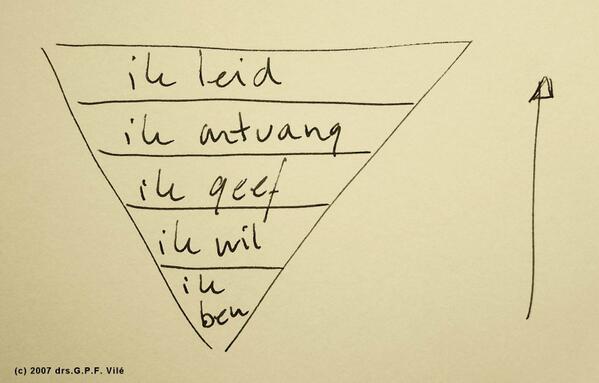 ik leid
ik ontvang
ik geef
ik wil
ik
ben
(c) 2007 drs.G.P.F. Vilé